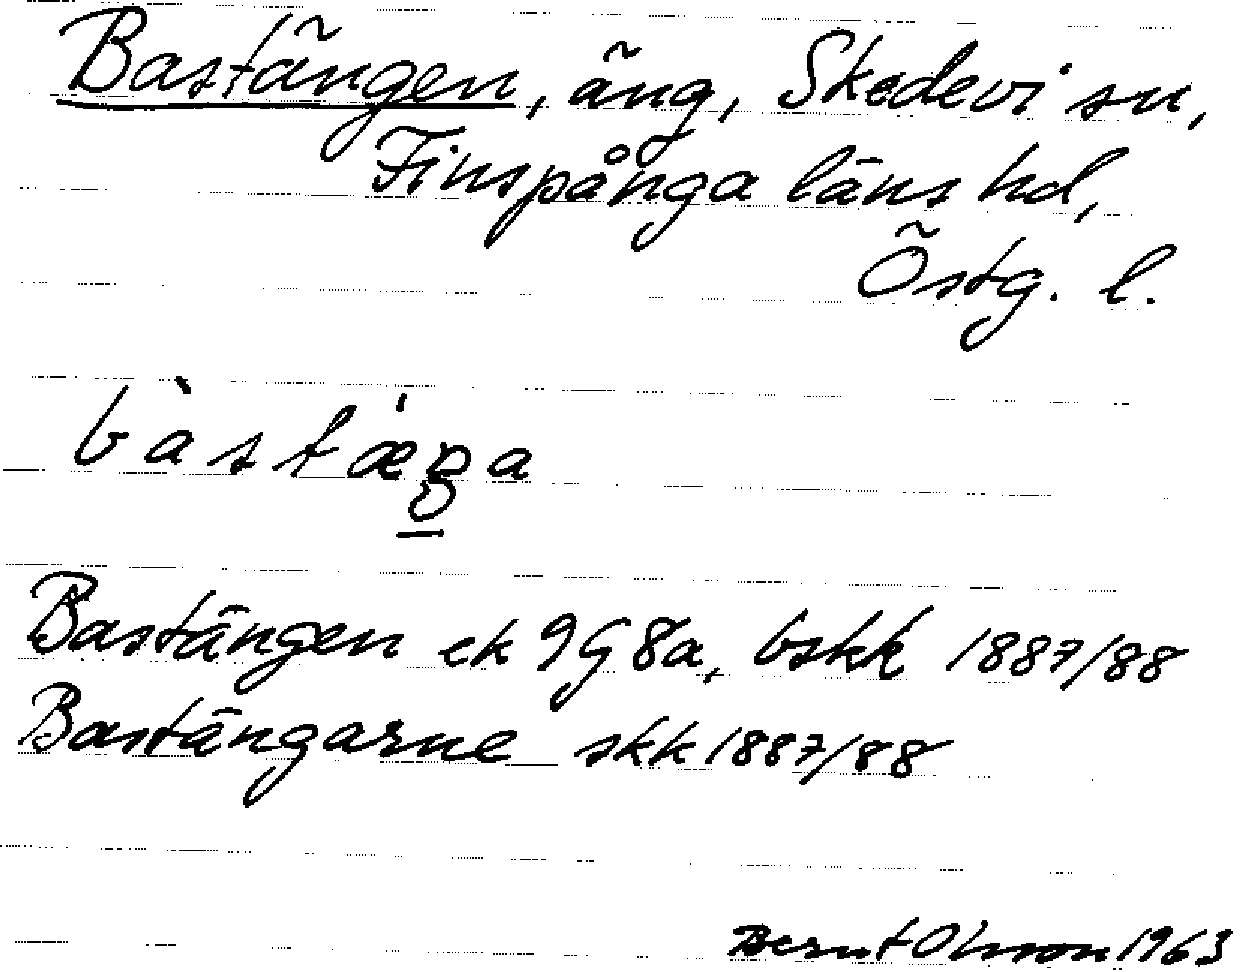 Bastängen, äng, Skedevi sn,
Finspånga läns hd,
Östg. l.
bàstæ̀ŋa
Bastängen ek 9G8a, bskk 1887/88
Bastängarne skk 1887/88
Bernt Olsson 1963